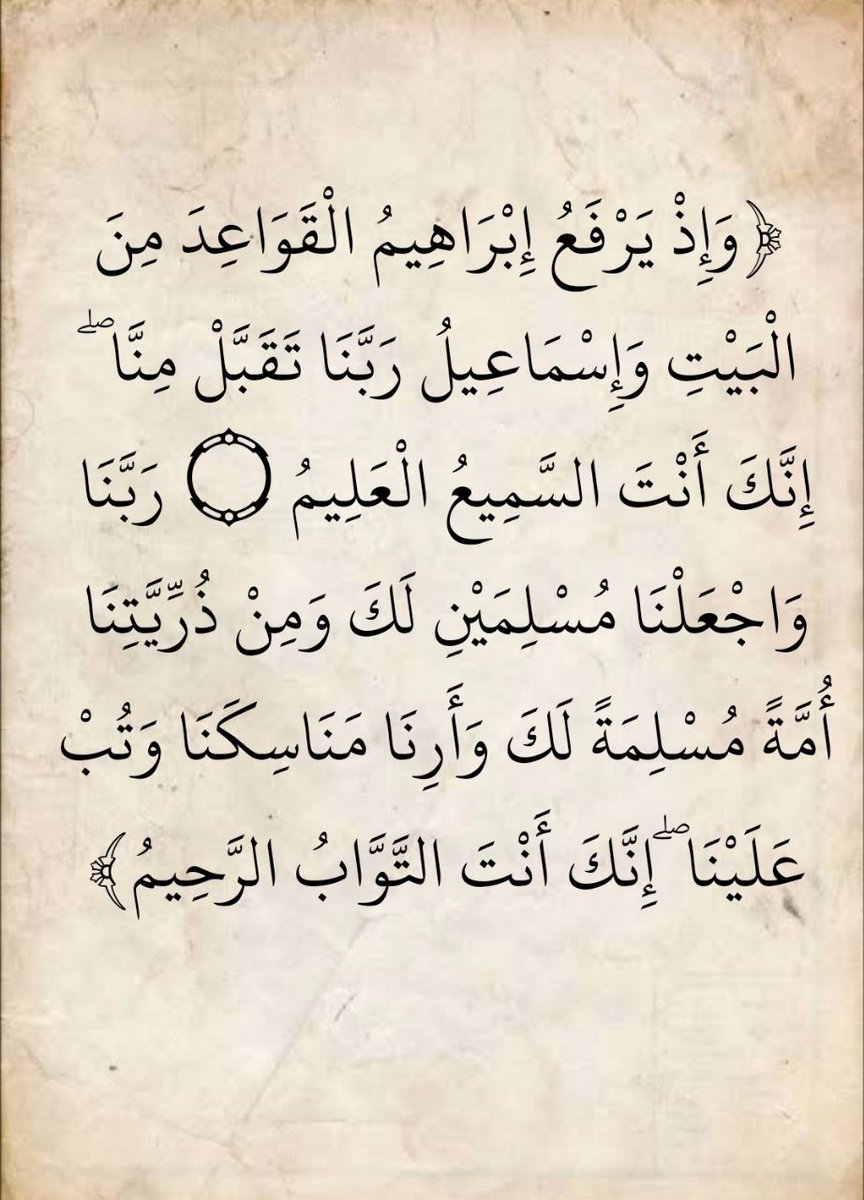 ﴿وَإِذْ يَرْفَعُ إِبْرَاهِيمُ الْقَوَاعِدَ مِنَ
الْبَيْتِ وَإِسْمَاعِيلُ رَبَّنَا تَقَبَّلْ مِنَّا ۖ
إِنَّكَ أَنْتَ السَّمِيعُ الْعَلِيمُ ۝ رَبَّنَا
وَاجْعَلْنَا مُسْلِمَيْنِ لَكَ وَمِنْ ذُرِّيَّتِنَا
أُمَّةً مُسْلِمَةً لَكَ وَأَرِنَا مَنَاسِكَنَا وَتُبْ
عَلَيْنَا ۖ إِنَّكَ أَنْتَ التَّوَّابُ الرَّحِيمُ﴾